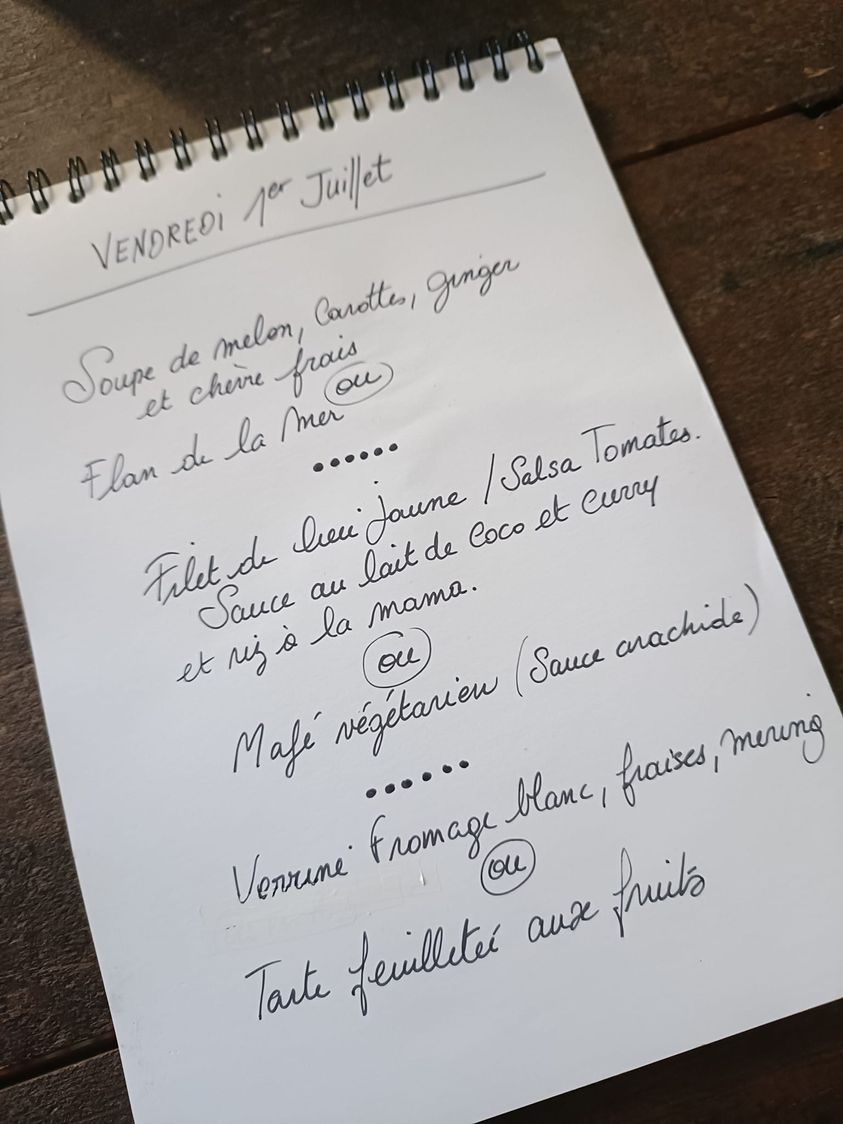 VENDREDI 1er Juillet
Soupe de melon, Carottes, ginger
et chèvre frais
ou
Flan de la Mer
Filet de lieu jaune / Salsa Tomates.
Sauce au lait de Coco et Curry
et riz à la mama.
ou
Mafé végétarien (Sauce arachide)
Verrine Fromage blanc, fraises, mering
ou
Tarte feuilleteé aux fruits